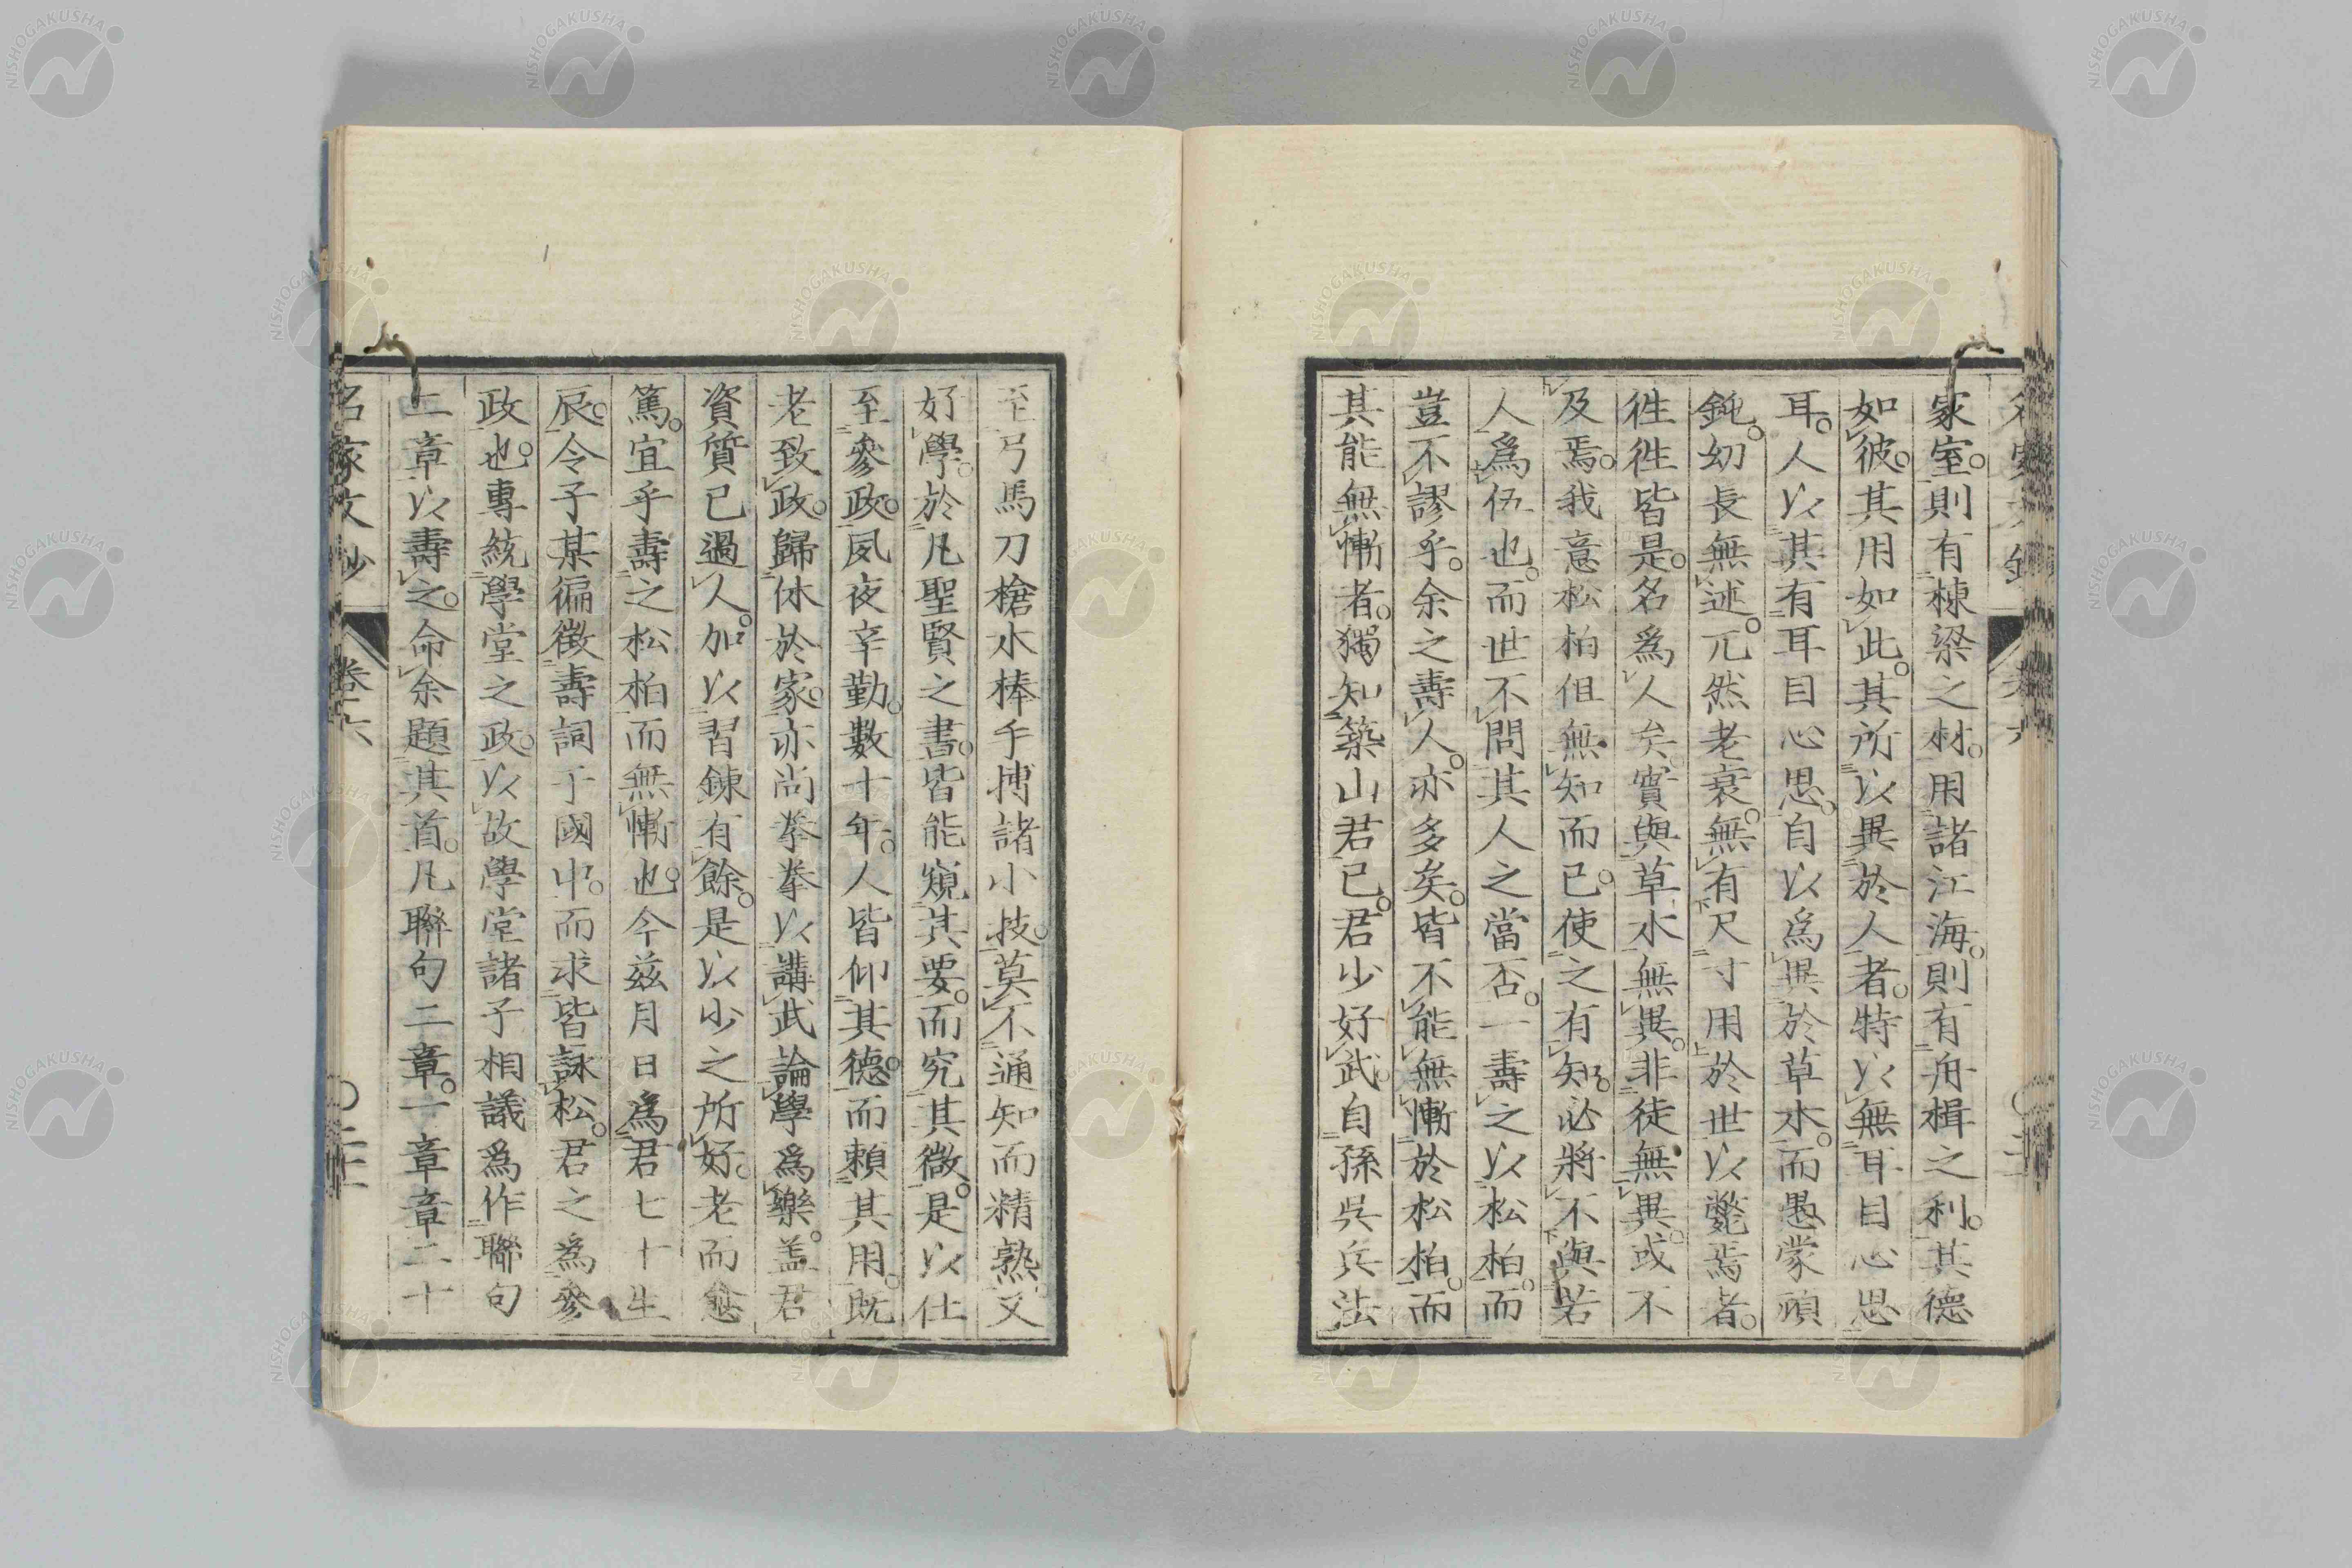 家室。則有棟梁之材。用諸江海。則有舟楫之利。其德
如彼。其用如此。其所以異於人者。特以無耳目心思
耳。人以其有耳目心思。自以爲異於草木。而愚蒙頑
鈍。幼長無述。兀然老衰。無有尺寸用於世以斃焉者。
徃徃皆是。名爲人矣。實與草木無異。非徒無異。或不
及焉。我意松柏但無知而已。使之有知。必將不與若
人爲伍也。而世不問其人之當否。一壽之以松柏。而
豈不謬乎。余之壽人。亦多矣。皆不能無慚於松柏。而
其能無慚者。獨知築山君已。君少好武。自孫吳兵法
至弓馬刀槍水棒手搏諸小技。莫不通知而精熟。又
好學。於凡聖賢之書。皆能窺其要。而究其微。是以仕
至參政。夙夜辛勤。數十年。人皆仰其德。而賴其用。既
老致政。歸休於家。亦尚拳拳以講武論學爲樂。盖君
資質已過人。加以習錬有餘。是以少之所好。老而愈
篤。宜乎壽之松柏而無慚也。今茲月日爲君七十生
辰。令子某徧徴壽詞于國中。而求皆詠松。君之爲參
政也。專統學堂之政。以故學堂諸子相議爲作聯句
二章以壽之。命余題其首。凡聯句二章。一章章二十
名家文抄 卷六
NISHOGAKUSHA